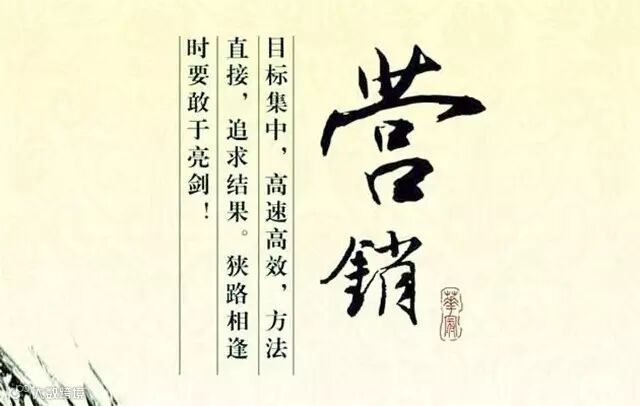 营銷
目标集中，高速高效，方法
直接，追求结果。狭路相逢
时要敢于亮剑！
大数跨境